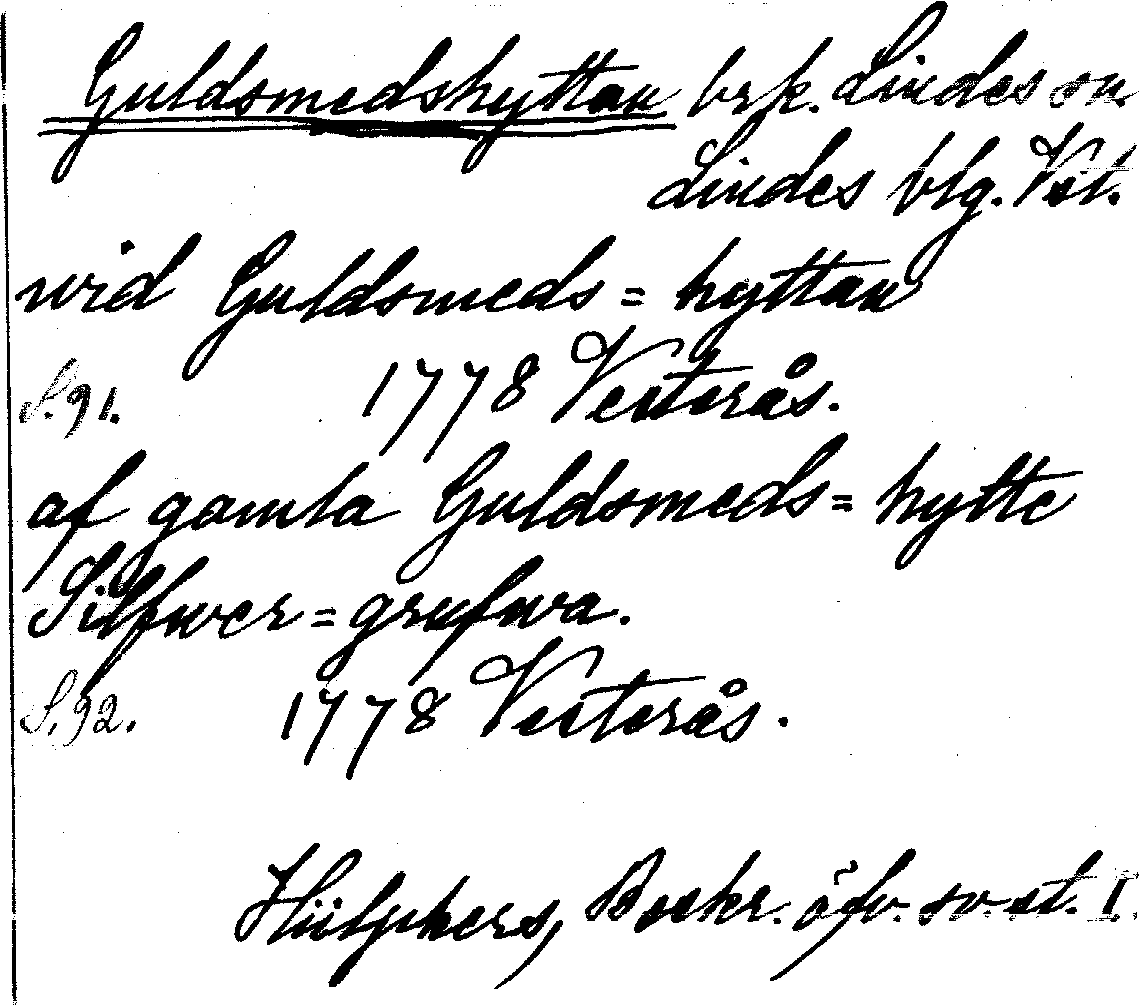 Guldsmedshyttan brk. Lindes sn.
Lindes blg. Vst.
wid Guldsmeds=hyttan
S.91. 1778 Vesterås.
af gamla Guldsmeds=hytte
Silfwer=grufwa.
S.92. 1778 Vesterås.
Hülphers, Beskr. öfv. sv. st. I.